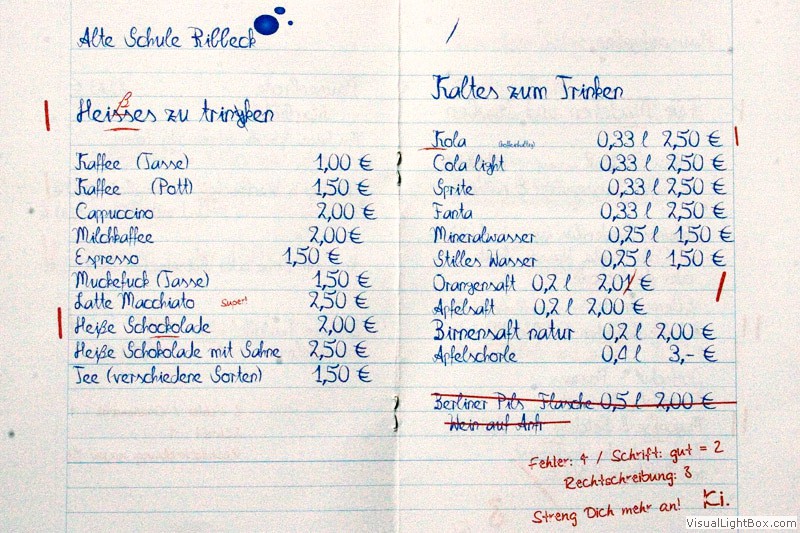 Alte Schule Ribbeck
ß
Heisses zu trinken
Kaffee (Tasse) 1,00 €
Kaffee (Pott) 1,50 €
Cappuccino 2,00 €
Milchkaffee 2,00 €
Espresso 1,50 €
Muckefuck (Tasse) 1,50 €
Latte Macchiato Super! 2,50 €
Heiße Schockolade 2,00 €
Heiße Schokolade mit Sahne 2,50 €
Tee (verschiedene Sorten) 1,50 €
Kaltes zum Trinken
Kola (koffeinhaltig) 0,33 l 2,50 €
Cola light 0,33 l 2,50 €
Sprite 0,33 l 2,50 €
Fanta 0,33 l 2,50 €
Mineralwasser 0,25 l 1,50 €
Stilles Wasser 0,25 l 1,50 €
Orangensaft 0,2 l 2,01 €
Apfelsaft 0,2 l 2,00 €
Birnensaft natur 0,2 l 2,00 €
Apfelschorle 0,4 l 3,- €
Berliner Pils Flasche 0,5 l 2,00 €
Wein auf Anfr
Fehler: 4 / Schrift: gut = 2
Rechtschreibung: 3
Streng Dich mehr an! Ki.
VisualLightBox.com